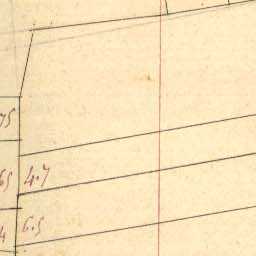 75
65 4.7
4 6.5